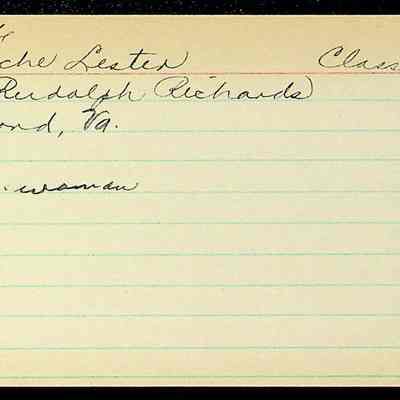 che Lester Class
Rudolph Richards
ond, Va.
. woman